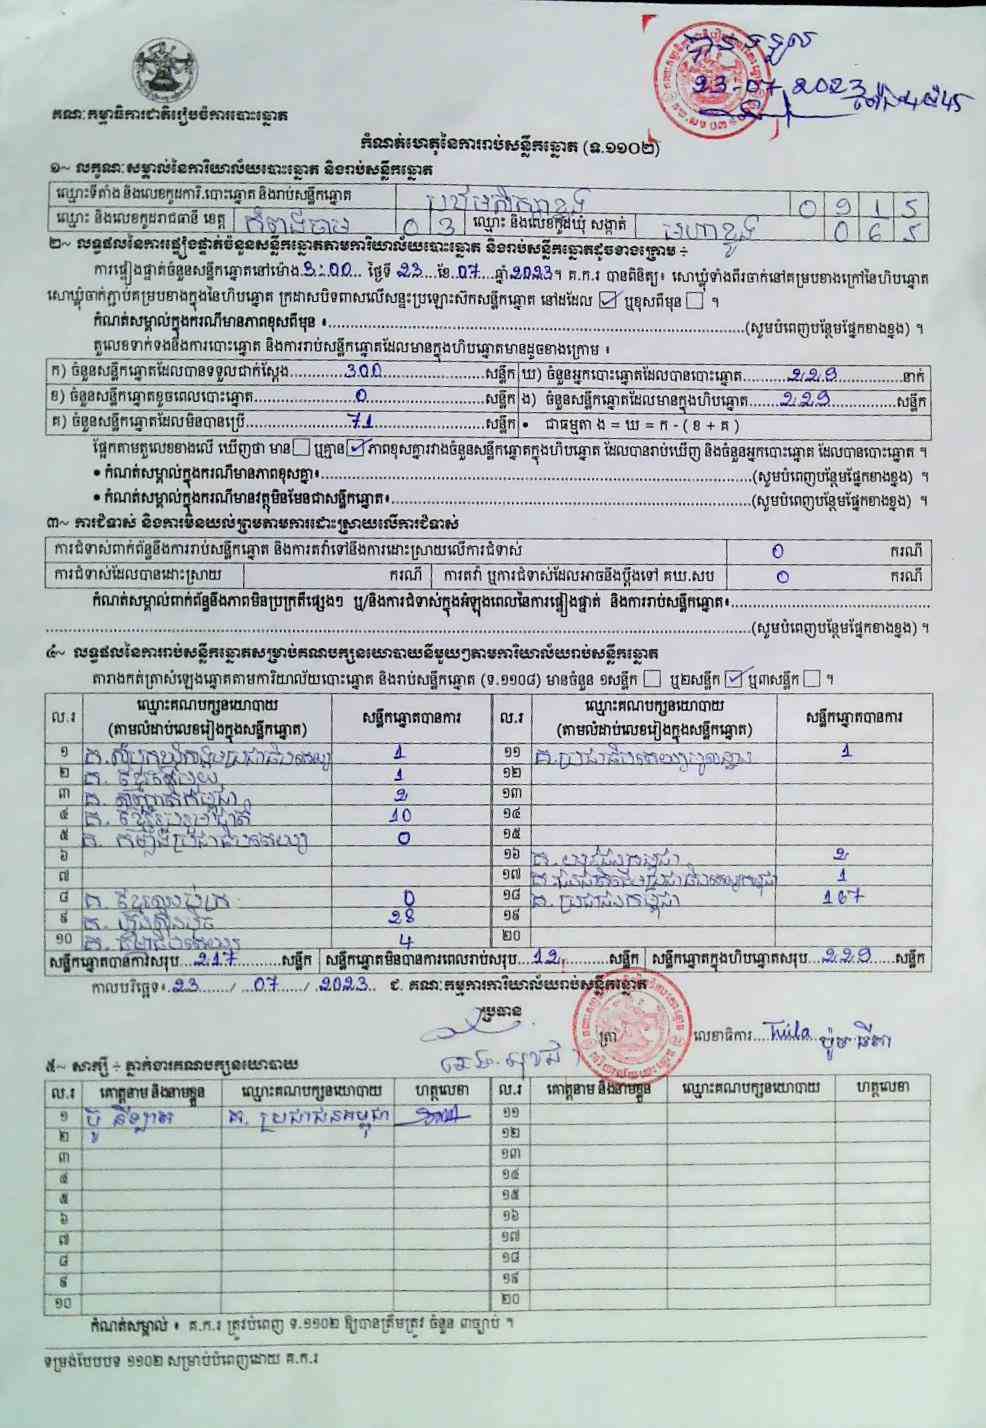 បានទទួល
23-07-2023
គណៈកម្មាធិការជាតិរៀបចំការបោះឆ្នោត
កំណត់ហេតុនៃការរាប់សន្លឹកឆ្នោត (ទ.១១០២)
១~ លក្ខណៈសម្គាល់នៃការិយាល័យបោះឆ្នោត និងរាប់សន្លឹកឆ្នោត
ឈ្មោះទីតាំង និងលេខកូដការិ.បោះឆ្នោត និងរាប់សន្លឹកឆ្នោត 0 9 1 5
ឈ្មោះ និងលេខកូដរាជធានី ខេត្ត កំពង់ចាម 0 3 ឈ្មោះ និងលេខកូដឃុំ សង្កាត់ មហាខ្ញូង 0 6 5
២~ លទ្ធផលនៃការផ្ទៀងផ្ទាត់ចំនួនសន្លឹកឆ្នោតតាមការិយាល័យបោះឆ្នោត និងរាប់សន្លឹកឆ្នោតដូចខាងក្រោម ÷
ការផ្ទៀងផ្ទាត់ចំនួនសន្លឹកឆ្នោតនៅម៉ោង 3:00 ថ្ងៃទី 23 ខែ 07 ឆ្នាំ 2023។ គ.ក.រ បានពិនិត្យ៖ សោឃ្លុំទាំងពីរចាក់នៅគម្របខាងក្រៅនៃហិបឆ្នោត
សោឃ្លុំចាក់ភ្ជាប់គម្របខាងក្នុងនៃហិបឆ្នោត ក្រដាសបិទពាសលើសន្ទះប្រឡោះស៊កសន្លឹកឆ្នោត នៅដដែល ☑ ឬខុសពីមុន ☐ ។
កំណត់សម្គាល់ក្នុងករណីមានភាពខុសពីមុន ៖ (សូមបំពេញបន្ថែមផ្នែកខាងខ្នង) ។
តួលេខទាក់ទងនឹងការបោះឆ្នោត និងការរាប់សន្លឹកឆ្នោតដែលមានក្នុងហិបឆ្នោតមានដូចខាងក្រោម ៖
ក) ចំនួនសន្លឹកឆ្នោតដែលបានទទួលជាក់ស្តែង 300 សន្លឹក ឃ) ចំនួនអ្នកបោះឆ្នោតដែលបានបោះឆ្នោត 229 នាក់
ខ) ចំនួនសន្លឹកឆ្នោតខូចពេលបោះឆ្នោត 0 សន្លឹក ង) ចំនួនសន្លឹកឆ្នោតដែលមានក្នុងហិបឆ្នោត 229 សន្លឹក
គ) ចំនួនសន្លឹកឆ្នោតដែលមិនបានប្រើ 71 សន្លឹក • ជាធម្មតា ង = ឃ = ក - ( ខ + គ )
ផ្អែកតាមតួលេខខាងលើ ឃើញថា មាន ☐ ឬគ្មាន ☑ ភាពខុសគ្នារវាងចំនួនសន្លឹកឆ្នោតក្នុងហិបឆ្នោត ដែលបានរាប់ឃើញ និងចំនួនអ្នកបោះឆ្នោត ដែលបានបោះឆ្នោត ។
• កំណត់សម្គាល់ក្នុងករណីមានភាពខុសគ្នា៖ (សូមបំពេញបន្ថែមផ្នែកខាងខ្នង) ។
• កំណត់សម្គាល់ក្នុងករណីមានវត្ថុមិនមែនជាសន្លឹកឆ្នោត៖ (សូមបំពេញបន្ថែមផ្នែកខាងខ្នង) ។
៣~ ការជំទាស់ និងការមិនយល់ព្រមតាមការដោះស្រាយលើការជំទាស់
ការជំទាស់ពាក់ព័ន្ធនឹងការរាប់សន្លឹកឆ្នោត និងការតវ៉ាទៅនឹងការដោះស្រាយលើការជំទាស់ 0 ករណី
ការជំទាស់ដែលបានដោះស្រាយ ករណី ការតវ៉ា ឬការជំទាស់ដែលអាចនឹងប្តឹងទៅ គឃ.សប 0 ករណី
កំណត់សម្គាល់ពាក់ព័ន្ធនឹងភាពមិនប្រក្រតីផ្សេងៗ ឬ/និងការជំទាស់ក្នុងអំឡុងពេលនៃការផ្ទៀងផ្ទាត់ និងការរាប់សន្លឹកឆ្នោត៖
(សូមបំពេញបន្ថែមផ្នែកខាងខ្នង) ។
៤~ លទ្ធផលនៃការរាប់សន្លឹកឆ្នោតសម្រាប់គណបក្សនយោបាយនីមួយៗតាមការិយាល័យរាប់សន្លឹកឆ្នោត
តារាងកត់ត្រាសំឡេងឆ្នោតតាមការិយាល័យបោះឆ្នោត និងរាប់សន្លឹកឆ្នោត (ទ.១១០៨) មានចំនួន ១សន្លឹក ☐ ឬ២សន្លឹក ☑ ឬ៣សន្លឹក ☐ ។
ល.រ ឈ្មោះគណបក្សនយោបាយ (តាមលំដាប់លេខរៀងក្នុងសន្លឹកឆ្នោត) សន្លឹកឆ្នោតបានការ ល.រ ឈ្មោះគណបក្សនយោបាយ (តាមលំដាប់លេខរៀងក្នុងសន្លឹកឆ្នោត) សន្លឹកឆ្នោតបានការ
១ 1 ១១ 1
២ 1 ១២
៣ 2 ១៣
៤ 10 ១៤
៥ គ. កម្លាំងប្រជាធិបតេយ្យ 0 ១៥
៦ ១៦ គ. យុវជនកម្ពុជា 2
៧ ១៧ 1
៨ 0 ១៨ គ. ប្រជាជនកម្ពុជា 167
៩ គ. ហ្វ៊ុនស៊ិនប៉ិច 28 ១៩
១០ 4 ២០
សន្លឹកឆ្នោតបានការសរុប 217 សន្លឹក សន្លឹកឆ្នោតមិនបានការពេលរាប់សរុប 12 សន្លឹក សន្លឹកឆ្នោតក្នុងហិបឆ្នោតសរុប 229 សន្លឹក
កាលបរិច្ឆេទ៖ 23 / 07 / 2023 ជ. គណៈកម្មការការិយាល័យរាប់សន្លឹកឆ្នោត
ប្រធាន
ត្រា លេខាធិការ
៥~ សាក្សី ÷ ភ្នាក់ងារគណបក្សនយោបាយ
ល.រ គោត្តនាម និងនាមខ្លួន ឈ្មោះគណបក្សនយោបាយ ហត្ថលេខា ល.រ គោត្តនាម និងនាមខ្លួន ឈ្មោះគណបក្សនយោបាយ ហត្ថលេខា
១ គ. ប្រជាជនកម្ពុជា ១១
២ ១២
៣ ១៣
៤ ១៤
៥ ១៥
៦ ១៦
៧ ១៧
៨ ១៨
៩ ១៩
១០ ២០
កំណត់សម្គាល់ ៖ គ.ក.រ ត្រូវបំពេញ ទ.១១០២ ឱ្យបានត្រឹមត្រូវ ចំនួន ៣ច្បាប់ ។
ទម្រង់បែបបទ ១១០២ សម្រាប់បំពេញដោយ គ.ក.រ